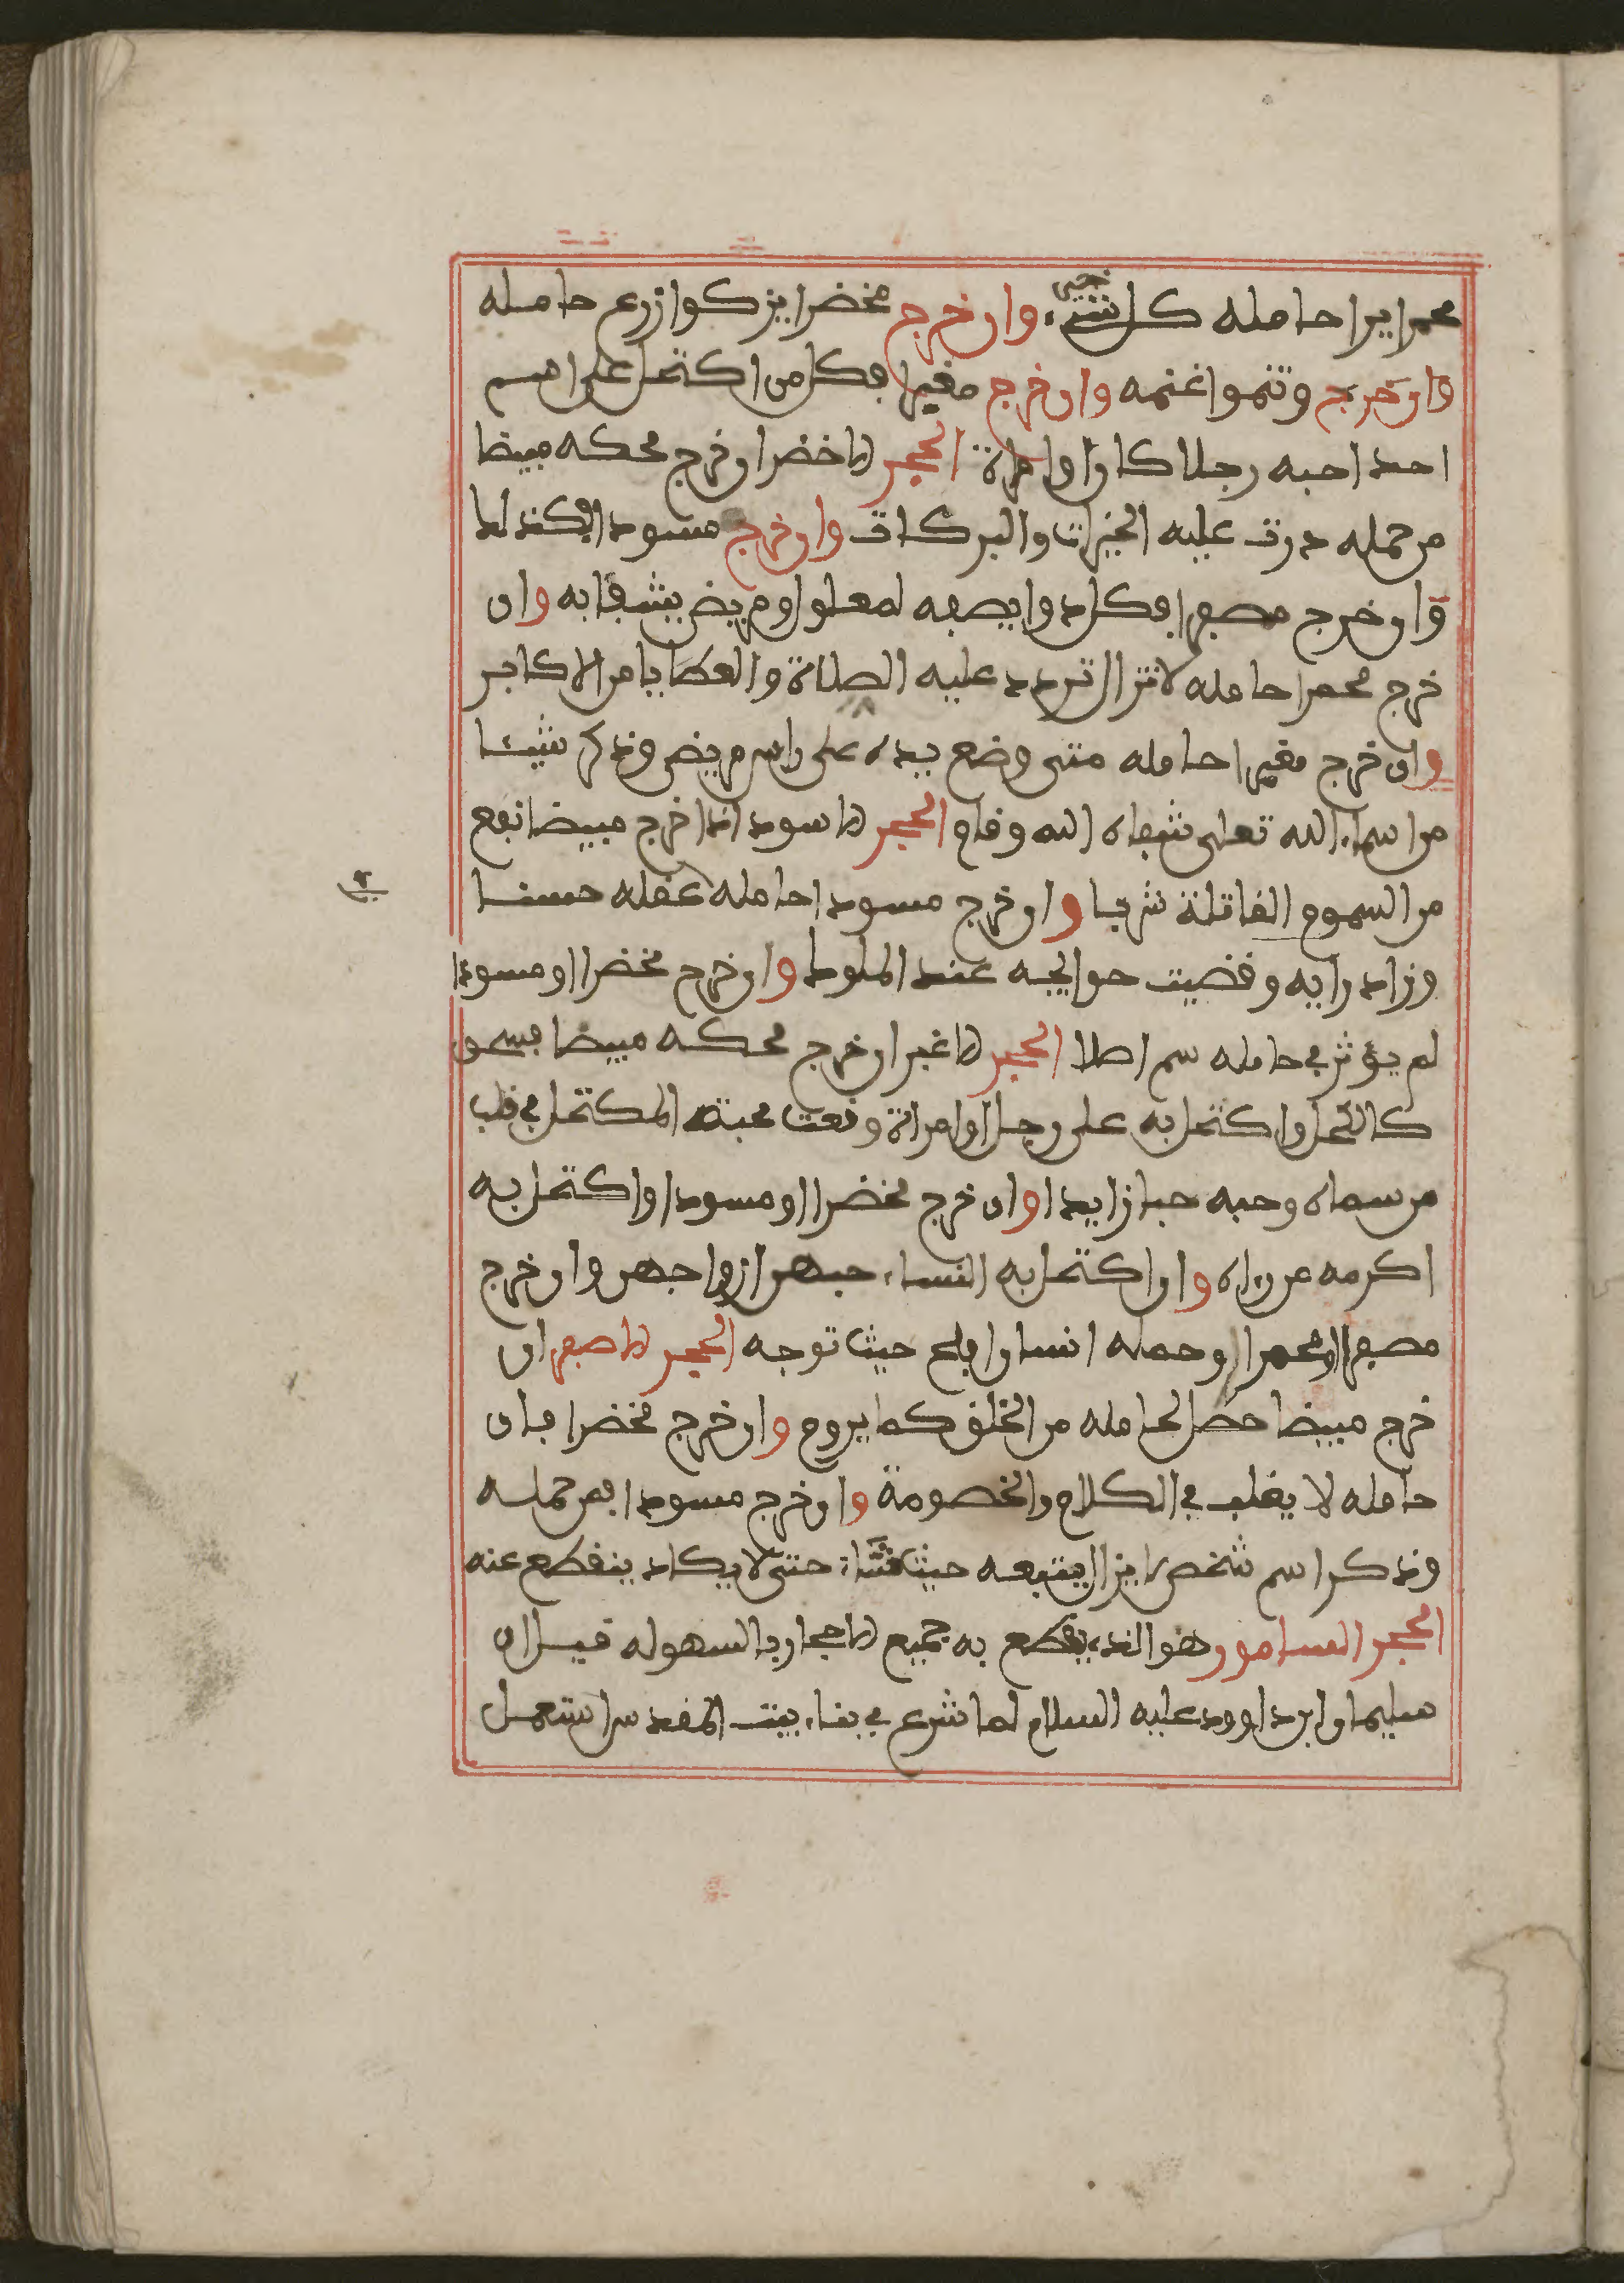 محمرا يرا حامله كل شيء خفى وان خرج مخضرا يزكوا زرع حامله
وان خرج وتنموا غنمه وان خرج مغبرا فكل من اكتحل على اسم
احد احبه رجلا كان او امراة الحجر الاخضر ان خرج محكه مبيضا
من حمله درت عليه الخيرات والبركات وان خرج مسودا فكذلك
وان خرج مصفرا فكل دوا يصفه لمعلول او مريض يشفا به وان
خرج محمرا حامله لا تزال تردد عليه الصلاة والعطايا من الاكابر
وان خرج مغبرا حامله متى وضع يده على راس مريض وذكر شيئا
من اسماء الله تعلى شفاه الله وقام الحجر الاسود اذا خرج مبيضا نفع
من السموم القاتلة شربا وان خرج مسودا حامله عقله حسنا
وزاد رايه وقضيت حوايجه عند الملوك وان خرج مخضرا او مسودا
لم يؤثر في حامله سم اصلا الحجر الاغبر ان خرج محكه مبيضا فسحق
كالكحل واكتحل به على رجل او امراة وقعت محبة المكتحل في قلب
من سماه وحبه حبا زايدا وان خرج مخضرا او مسودا واكتحل به
اكرمه من راه وان اكتحل به النساء حبهن ازواجهن وان خرج
مصفرا او محمرا وحمله انسان افلح حيث توجه الحجر الاصفر ان
خرج مبيضا حصل لحامله من الخلق كما يروم وان خرج مخضرا فان
حامله لا يغلب في الكلام والخصومة وان خرج مسودا فمن حمله
وذكر اسم شخص لا يزال يتبعه حيث شاء حتى لا يكاد ينقطع عنه
الحجر السامور وهو الذي يقطع به جميع الاحجار بالسهوله قيل ان
سليمان ابن داوود عليه السلام لما شرع في بناء بيت المقدس استعمل